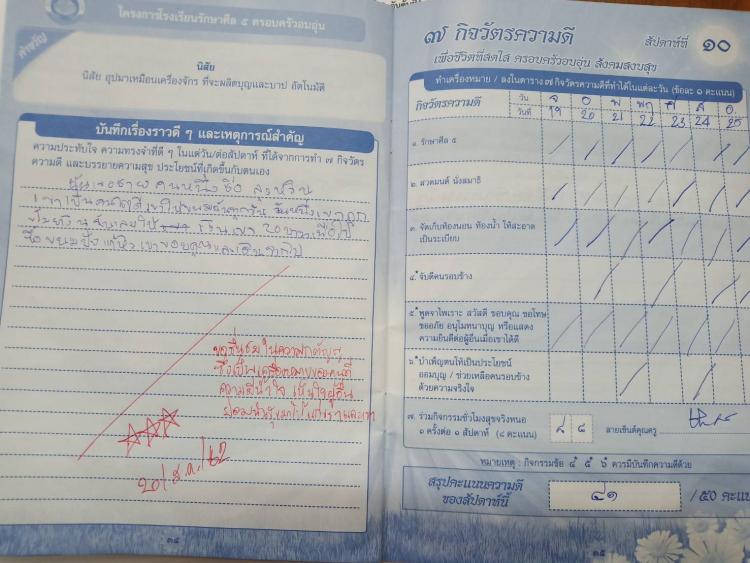 โครงการโรงเรียนรักษาศีล ๕ ครอบครัวอบอุ่น
คำขวัญ
นิสัย
นิสัย อุปมาเหมือนเครื่องจักร ที่จะผลิตบุญและบาป อัตโนมัติ
บันทึกเรื่องราวดี ๆ และเหตุการณ์สำคัญ
ความประทับใจ ความทรงจำที่ดี ๆ ในแต่ละวัน/ต่อสัปดาห์ ที่ได้จากการทำ ๗ กิจวัตร
ความดี และบรรยายความสุข ประโยชน์ที่เกิดขึ้นกับตนเอง
คนหนึ่งชื่อ
เขาเป็นคน
เงินเขา 20 บาทเพื่อไป
ซื้อขนมปัง เขาขอบคุณและเดินจากไป
ขอชื่นชมในความกตัญญู
ซึ่งเป็นเครื่องหมายของคนดี
ความมีน้ำใจ เห็นใจผู้อื่น
20/ส.ค./62
๓๔
๗ กิจวัตรความดี
สัปดาห์ที่ ๑๐
เพื่อชีวิตที่สดใส ครอบครัวอบอุ่น สังคมสงบสุข
ทำเครื่องหมาย / ลงในตาราง ๗ กิจวัตรความดีที่ทำได้ในแต่ละวัน (ข้อละ ๑ คะแนน)
กิจวัตรความดี วัน จ อ พ พฤ ศ ส อ
วันที่ 19 20 21 22 23 24 25
๑. รักษาศีล ๕
๒. สวดมนต์ นั่งสมาธิ
๓. จัดเก็บห้องนอน ห้องน้ำ ให้สะอาด
เป็นระเบียบ
๔. จับดีคนรอบข้าง
๕. พูดจาไพเราะ สวัสดี ขอบคุณ ขอโทษ
ขออภัย อนุโมทนาบุญ หรือแสดง
ความยินดีต่อผู้อื่นเมื่อเขาได้ดี
๖. บำเพ็ญตนให้เป็นประโยชน์
ออมบุญ / ช่วยเหลือคนรอบข้าง
ด้วยความจริงใจ
๗. ร่วมกิจกรรมชั่วโมงสุขจริงหนอ
๑ ครั้งต่อ ๑ สัปดาห์ (๘ คะแนน) ๘ ๘ ลายเซ็นต์คุณครู
หมายเหตุ : กิจกรรมข้อ ๔ ๕ ๖ ควรมีบันทึกความดีด้วย
สรุปคะแนนความดี
ของสัปดาห์นี้ ๔๑ / ๕๐ คะแน
๓๕